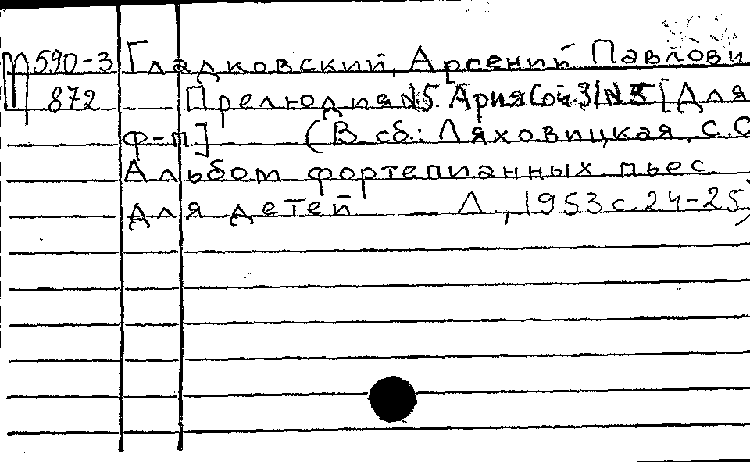 П590-3 Гладковский, Арсений Павлови
872 Прелюдия №5. Ария соч.31 №5 [Для
ф-п.] (В сб.: Ляховицкая, С.С.
Альбом фортепианных пьес
для детей Л., 1953 с. 24-25)